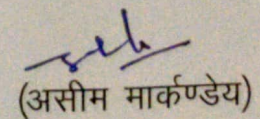 (असीम मार्कण्डेय)